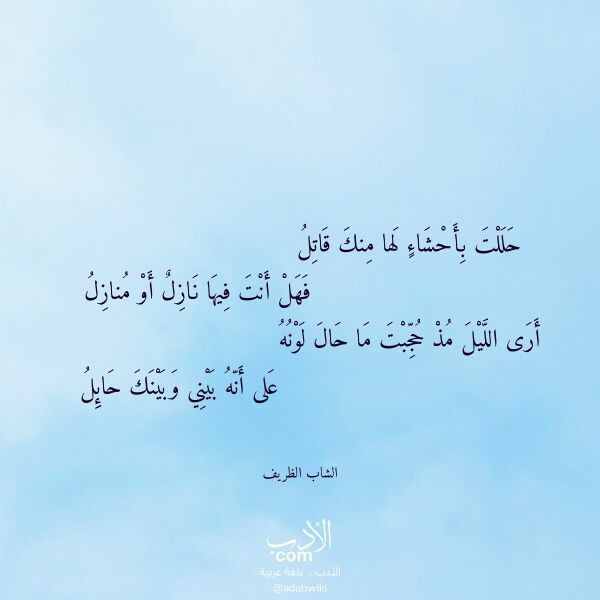 حَلَلْتَ بِأَحْشَاءٍ لَها مِنكَ قَاتِلُ
فَهَلْ أَنْتَ فِيهَا نَازِلٌ أَوْ مُنازِلُ
أَرَى اللَّيْلَ مُذْ حُجِّبْتَ مَا حَالَ لَوْنُهُ
عَلى أَنّهُ بَيْنِي وَبَيْنَكَ حَائِلُ
الشاب الظريف
الأدب
.com
الأدب .. بلغة عربية
@adabwiki